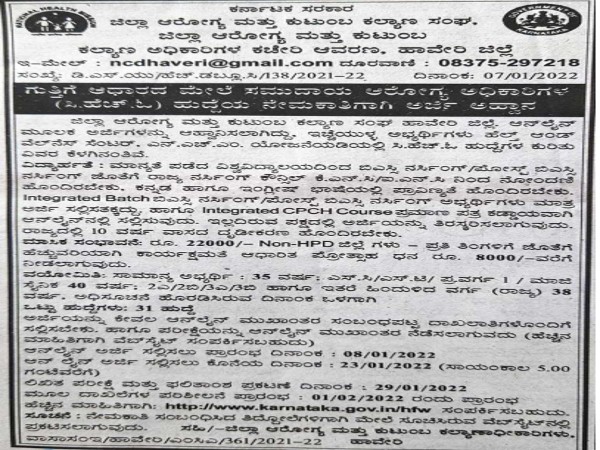 NATIONAL HEALTH MISSION
GOVERNMENT OF KARNATAKA
ಕರ್ನಾಟಕ ಸರಕಾರ
ಜಿಲ್ಲಾ ಆರೋಗ್ಯ ಮತ್ತು ಕುಟುಂಬ ಕಲ್ಯಾಣ ಸಂಘ.
ಜಿಲ್ಲಾ ಆರೋಗ್ಯ ಮತ್ತು ಕುಟುಂಬ
ಕಲ್ಯಾಣ ಅಧಿಕಾರಿಗಳ ಕಚೇರಿ ಆವರಣ, ಹಾವೇರಿ ಜಿಲ್ಲೆ
ಇ-ಮೇಲ್ : ncdhaveri@gmail.com ದೂರವಾಣಿ : 08375-297218
ಸಂಖ್ಯೆ: ಡಿ.ಎಸ್.ಯು/ಹೆಚ್.ಡಬ್ಲೂ.ಸಿ/138/2021-22 ದಿನಾಂಕ: 07/01/2022
ಗುತ್ತಿಗೆ ಆಧಾರದ ಮೇಲೆ ಸಮುದಾಯ ಆರೋಗ್ಯ ಅಧಿಕಾರಿಗಳ
(ಸಿ.ಹೆಚ್.ಓ) ಹುದ್ದೆಯ ನೇಮಕಾತಿಗಾಗಿ ಅರ್ಜಿ ಆಹ್ವಾನ
ಜಿಲ್ಲಾ ಆರೋಗ್ಯ ಮತ್ತು ಕುಟುಂಬ ಕಲ್ಯಾಣ ಸಂಘ ಹಾವೇರಿ ಜಿಲ್ಲೆ. ಆನ್‌ಲೈನ್
ಮೂಲಕ ಅರ್ಜಿಗಳನ್ನು ಆಹ್ವಾನಿಸಲಾಗಿದ್ದು, ಇಚ್ಛೆಯುಳ್ಳ ಅಭ್ಯರ್ಥಿಗಳು ಹೆಲ್ತ್ ಆಂಡ್
ವೆಲ್‌ನೆಸ್ ಸೆಂಟರ್. ಎನ್.ಎಚ್.ಎಂ. ಯೋಜನೆಯಡಿಯಲ್ಲಿ ಸಿ.ಹೆಚ್.ಓ ಹುದ್ದೆಗಳ ಕುರಿತು
ವಿವರ ಕೆಳಗಿನಂತಿವೆ.
ವಿದ್ಯಾರ್ಹತೆ : ಮಾನ್ಯತೆ ಪಡೆದ ವಿಶ್ವವಿದ್ಯಾಲಯದಿಂದ ಬಿಎಸ್ಸಿ ನರ್ಸಿಂಗ್/ಪೋಸ್ಟ್ ಬಿಎಸ್ಸಿ
ನರ್ಸಿಂಗ್ ಜೊತೆಗೆ ರಾಜ್ಯ ನರ್ಸಿಂಗ್ ಕೌನ್ಸಿಲ್ ಕೆ.ಎನ್.ಸಿ/ಐ.ಎನ್.ಸಿ ನಿಂದ ನೋಂದಣಿ
ಹೊಂದಿರಬೇಕು. ಕನ್ನಡ ಹಾಗೂ ಇಂಗ್ಲೀಷ್ ಭಾಷೆಯಲ್ಲಿ ಪ್ರಾವಿಣ್ಯತೆ ಹೊಂದಿರಬೇಕು.
Integrated Batch ಬಿಎಸ್ಸಿ ನರ್ಸಿಂಗ್/ಪೋಸ್ಟ್ ಬಿಎಸ್ಸಿ ನರ್ಸಿಂಗ್ ಅಭ್ಯರ್ಥಿಗಳು ಮಾತ್ರ
ಅರ್ಜಿ ಸಲ್ಲಿಸತಕ್ಕದ್ದು, ಹಾಗೂ Integrated CPCH Course ಪ್ರಮಾಣ ಪತ್ರ ಕಡ್ಡಾಯವಾಗಿ
ಆನ್‌ಲೈನ್‌ನಲ್ಲಿ ಸಲ್ಲಿಸುವುದು. ಇಲ್ಲದಿರುವ ಪಕ್ಷದಲ್ಲಿ ಅರ್ಜಿಯನ್ನು ತಿರಸ್ಕರಿಸಲಾಗುವುದು.
ರಾಜ್ಯದಲ್ಲಿ 10 ವರ್ಷ ವಾಸದ ದೃಢೀಕರಣ ಹೊಂದಿರಬೇಕು.
ಮಾಸಿಕ ಸಂಭಾವನೆ: ರೂ. 22000/- Non-HPD ಜಿಲ್ಲೆಗಳು - ಪ್ರತಿ ತಿಂಗಳಿಗೆ ಜೊತೆಗೆ
ಹೆಚ್ಚುವರಿಯಾಗಿ ಕಾರ್ಯಕ್ಷಮತೆ ಆಧಾರಿತ ಪ್ರೋತ್ಸಾಹ ಧನ ರೂ. 8000/-ವರೆಗೆ
ನೀಡಲಾಗುವುದು.
ವಯೋಮಿತಿ: ಸಾಮಾನ್ಯ ಅಭ್ಯರ್ಥಿ : 35 ವರ್ಷ: ಎಸ್.ಸಿ/ಎಸ್.ಟಿ/ ಪ್ರವರ್ಗ 1 / ಮಾಜಿ
ಸೈನಿಕ 40 ವರ್ಷ; 2ಎ/2ಬಿ/3ಎ/3ಬಿ ಹಾಗೂ ಇತರೆ ಹಿಂದುಳಿದ ವರ್ಗ (ರಾಜ್ಯ) 38
ವರ್ಷ. ಅಧಿಸೂಚನೆ ಹೊರಡಿಸಿರುವ ದಿನಾಂಕ ಒಳಗಾಗಿ
ಒಟ್ಟು ಹುದ್ದೆಗಳು: 31 ಹುದ್ದೆ
ಅರ್ಜಿಯನ್ನು ಕೇವಲ ಆನ್‌ಲೈನ್ ಮುಖಾಂತರ ಸಂಬಂಧಪಟ್ಟ ದಾಖಲಾತಿಗಳೊಂದಿಗೆ
ಸಲ್ಲಿಸಬೇಕು. ಹಾಗೂ ಪರೀಕ್ಷೆಯನ್ನು ಆನ್‌ಲೈನ್ ಮುಖಾಂತರ ನಡೆಸಲಾಗುವದು (ಹೆಚ್ಚಿನ
ಮಾಹಿತಿಗಾಗಿ ವೆಬ್‌ಸೈಟ್ ಸಂಪರ್ಕಿಸಬಹುದು)
ಆನ್‌ಲೈನ್ ಅರ್ಜಿ ಸಲ್ಲಿಸಲು ಪ್ರಾರಂಭ ದಿನಾಂಕ : 08/01/2022
ಆನ್ ಲೈನ್ ಅರ್ಜಿ ಸಲ್ಲಿಸಲು ಕೊನೆಯ ದಿನಾಂಕ : 23/01/2022 (ಸಾಯಂಕಾಲ 5.00
ಗಂಟೆವರೆಗೆ)
ಲಿಖಿತ ಪರೀಕ್ಷೆ ಮತ್ತು ಫಲಿತಾಂಶ ಪ್ರಕಟಣೆ ದಿನಾಂಕ : 29/01/2022
ಮೂಲ ದಾಖಲೆಗಳ ಪರಿಶೀಲನೆ ಪ್ರಾರಂಭ : 01/02/2022 ರಂದು ಪ್ರಾರಂಭ
ಹೆಚ್ಚಿನ ಮಾಹಿತಿಗಾಗಿ: http://www.karnataka.gov.in/hfw ಸಂಪರ್ಕಿಸಬಹುದು.
ಸೂಚನೆ : ನೇಮಕಾತಿ ಸಂಬಂಧಿಸಿದ ತಿದ್ದೋಲೆಗಳಿಗಾಗಿ ಮೇಲೆ ಸೂಚಿಸಿರುವ ವೆಬ್‌ಸೈಟ್‌ನಲ್ಲಿ
ಪ್ರಕಟಿಸಲಾಗುವುದು. ಸಹಿ/-ಜಿಲ್ಲಾ ಆರೋಗ್ಯ ಮತ್ತು ಕುಟುಂಬ ಕಲ್ಯಾಣಾಧಿಕಾರಿಗಳು.
ವಾಸಾಸಂಇ/ಹಾವೇರಿ/ಎಂಸಿಎ/361/2021-22 ಹಾವೇರಿ